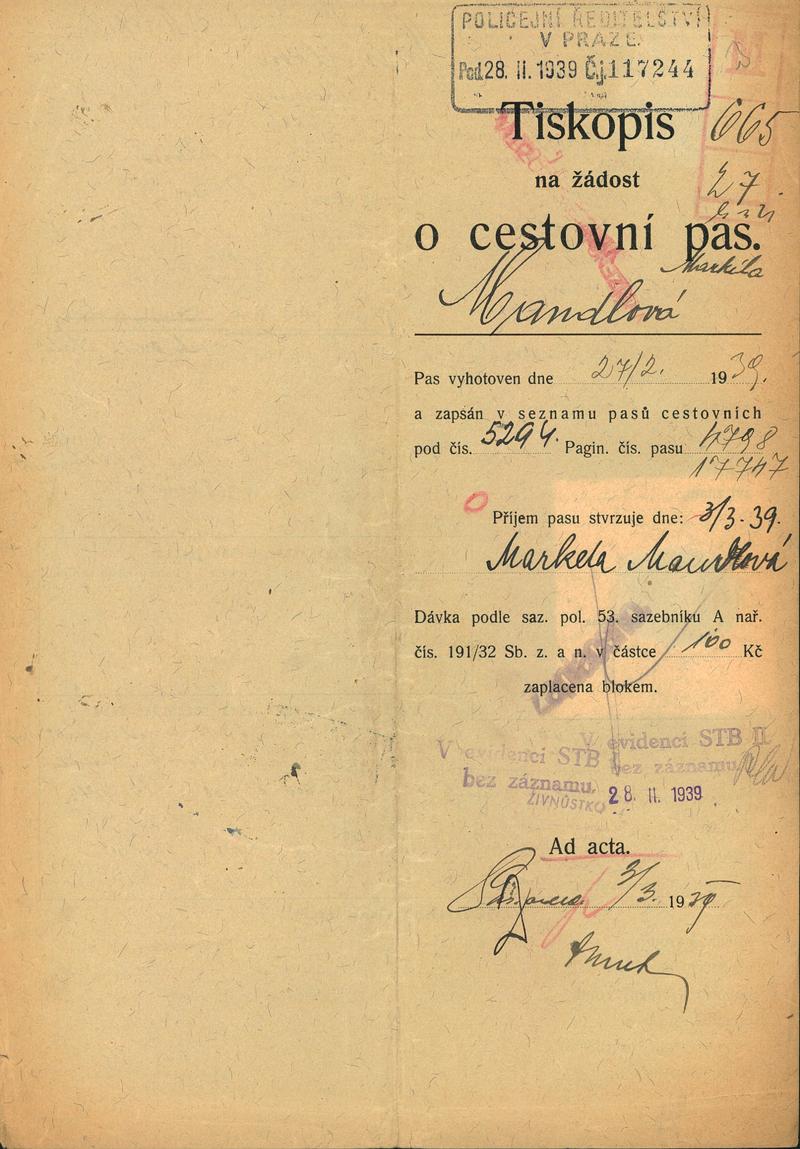 POLICEJNÍ ŘEDITELSTVÍ
V PRAZE.
Pod. 28. II. 1939 Čj. 117244
Tiskopis 665
na žádost 27
o cestovní pas.
Markéta
Mandlová
Pas vyhotoven dne 27/2. 1939.
a zapsán v seznamu pasů cestovních
pod čís. 5294. Pagin. čís. pasu 4798
17747
Příjem pasu stvrzuje dne: 3/3. 39.
Marketa Mandlová
Dávka podle saz. pol. 53. sazebníku A nař.
čís. 191/32 Sb. z. a n. v částce 100 Kč
zaplacena blokem.
V evidenci STB
V evidenci STB II
bez záznamu.
bez záznamu
ŽIVNŮSTKO
28. II. 1939
Ad acta.
3/3. 1939